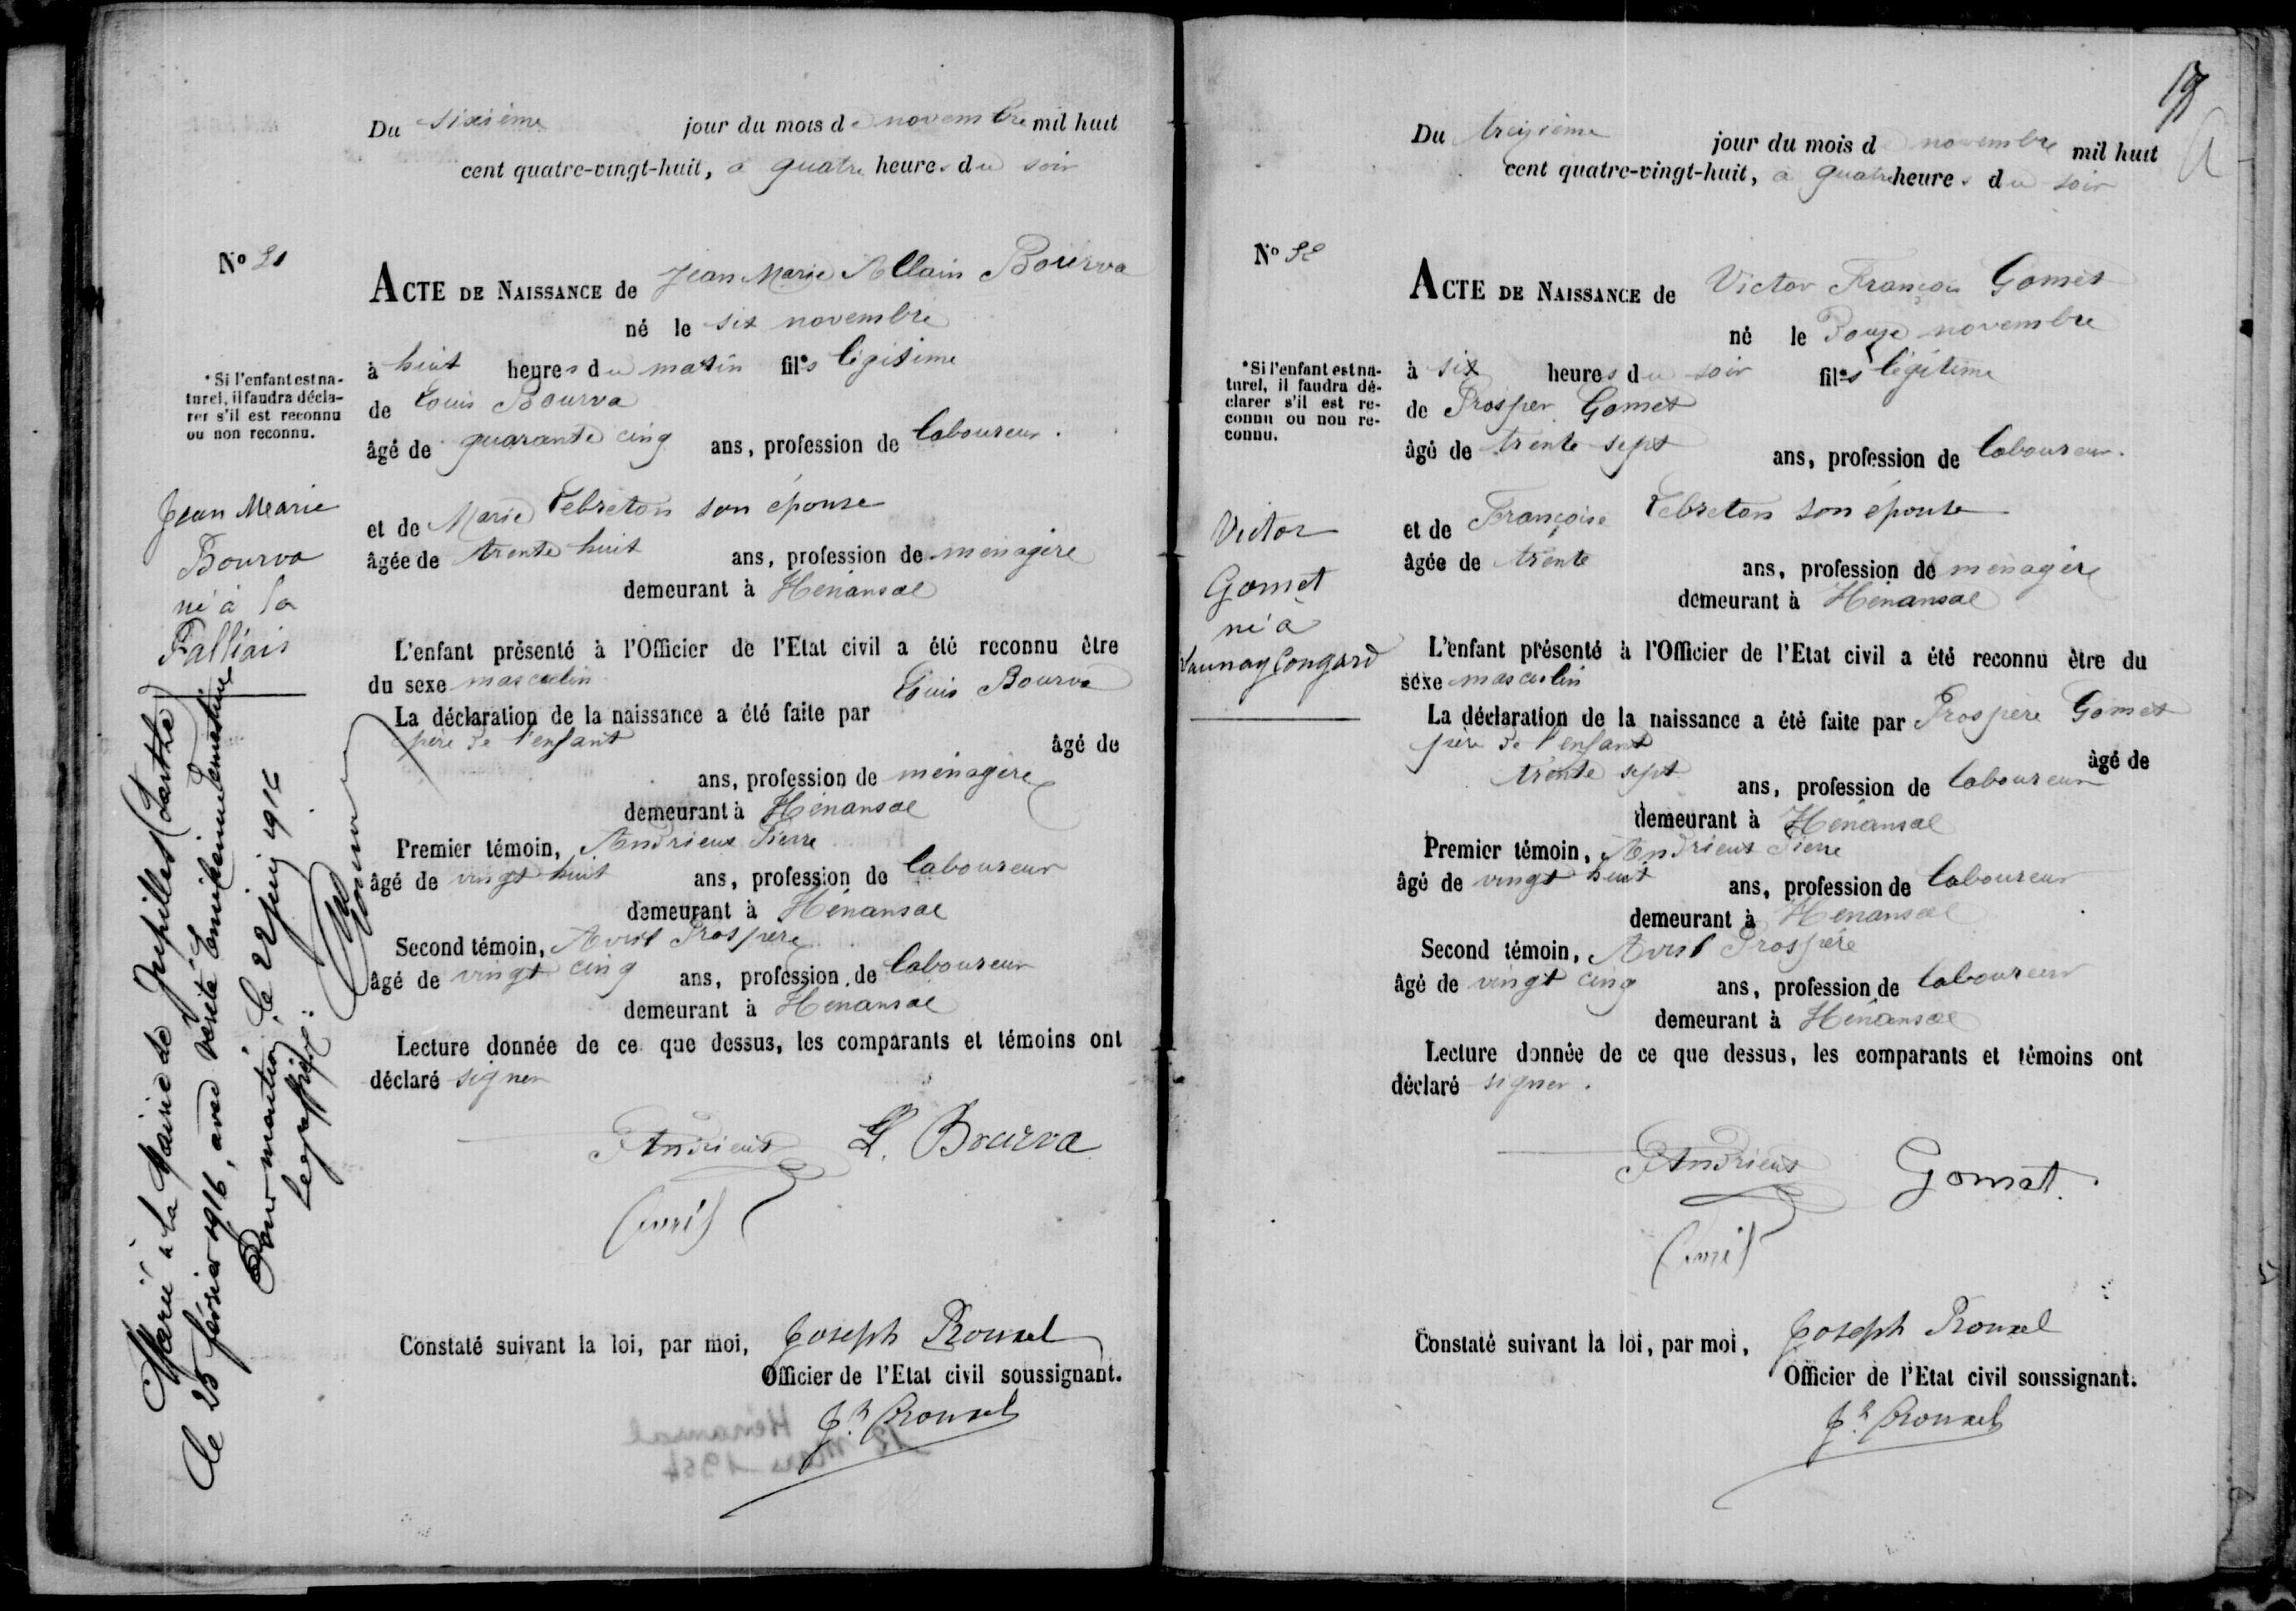 Du sixième jour du mois de novembre mil huit
cent quatre-vingt-huit, à quatre heures du soir
N° 31
ACTE DE NAISSANCE de Jean Marie Allain Bourva
né le six novembre
à huit heures du matin fils légitime
*Si l'enfant est na-
turel, il faudra décla-
rer s'il est reconnu
ou non reconnu.
de Louis Bourva
âgé de quarante cinq ans, profession de laboureur.
et de Marie Lebreton son épouse
âgée de trente huit ans, profession de ménagère
demeurant à Hénansal
Jean Marie
Bourva
né à la
L'enfant présenté à l'Officier de l'Etat civil a été reconnu être
du sexe masculin
La déclaration de la naissance a été faite par Louis Bourva
père de l'enfant âgé de
ans, profession de ménagère
demeurant à Hénansal
Premier témoin, Andrieux Pierre
âgé de vingt huit ans, profession de laboureur
demeurant à Hénansal
Second témoin, Avril Prospère
âgé de vingt cinq ans, profession de laboureur
demeurant à Hénansal
Lecture donnée de ce que dessus, les comparants et témoins ont
déclaré signer
PAndrieux L. Bourva
Avril
Constaté suivant la loi, par moi, Joseph Rouxel
Officier de l'Etat civil soussignant.
Jh Rouxel
Hénansal
12 Mars 1964
Marié à la Mairie de Jupilles (Sarthe)
le 25 février 1916, avec
Pour mention, le 22 juin 1916
Le greffier:
19
Du treizième jour du mois d novembre mil huit
cent quatre-vingt-huit, à quatre heures du soir
N° 32
ACTE DE NAISSANCE de Victor François Gomet
né le Douze novembre
à six heures du soir fils légitime
*Si l'enfant est na-
turel, il faudra dé-
clarer s'il est re-
connu ou non re-
connu.
de Prosper Gomet
âgé de trente sept ans, profession de laboureur.
et de Françoise Lebreton son épouse
âgée de trente ans, profession de ménagère
demeurant à Hénansal
Victor
Gomet
né à
Launay Congard
L'enfant présenté à l'Officier de l'Etat civil a été reconnu être du
sexe masculin
La déclaration de la naissance a été faite par Prospère Gomet
père de l'enfant âgé de
trente sept ans, profession de laboureur
demeurant à Hénansal
Premier témoin, Andrieux Pierre
âgé de vingt huit ans, profession de laboureur
demeurant à Hénansal
Second témoin, Avril Prospère
âgé de vingt cinq ans, profession de laboureur
demeurant à Hénansal
Lecture donnée de ce que dessus, les comparants et témoins ont
déclaré signer.
PAndrieux Gomet.
Avril
Constaté suivant la loi, par moi, Joseph Rouxel
Officier de l'Etat civil soussignant.
Jh Rouxel